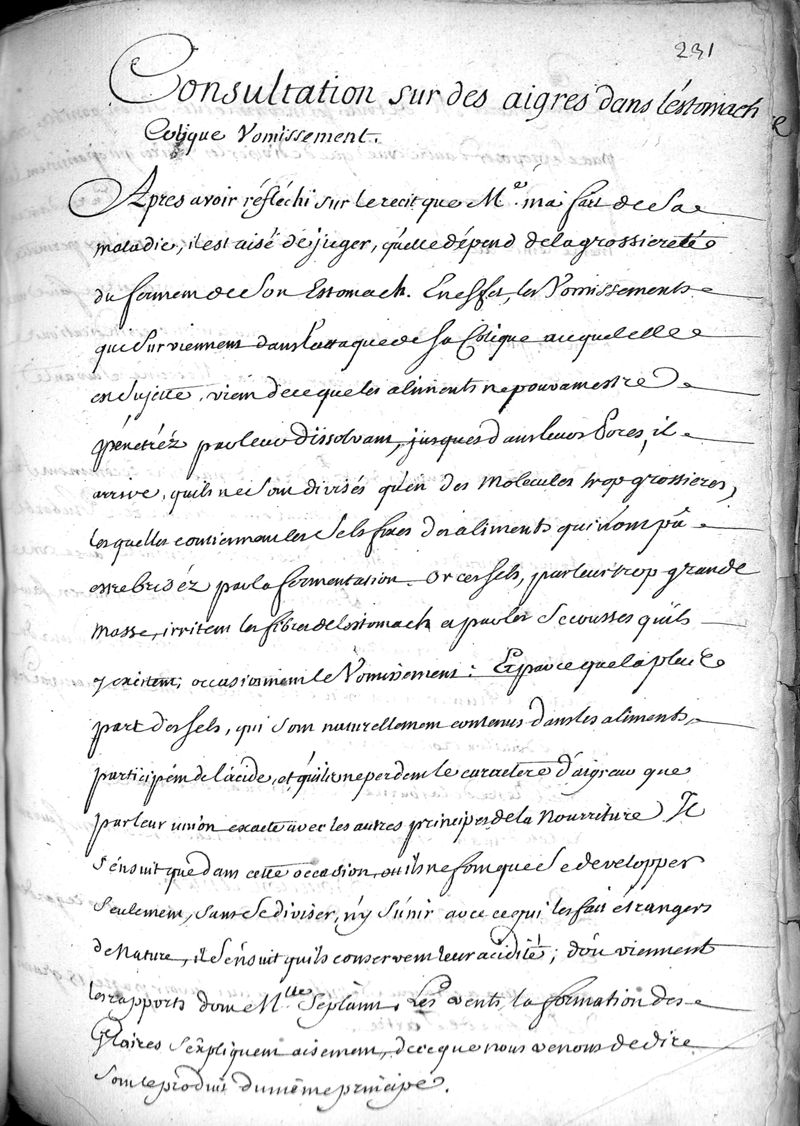 231
Consultation sur des aigres dans l'éstomach
Colique Vomissement.
Apres avoir réfléchi sur le recit que Mr. m'a fait de Sa
maladie, il est aisé de juger, qu'elle dépend de la grossiereté
du fermen de Son Estomach. En effet, les Vomissements
qui Surviennent dans l'attaque de Sa Colique auquel elle
est Sujette, vien de ce que les aliments ne pouvant estre
pénétréz par leur dissolvant, jusques dans leurs Pores, il
arrive, qu'ils ne Sont divisés qu'en des molecules trop grossieres,
lesquelles contiennent les Sels fixes des aliments qui n'ont pû
estre briséz par la fermentation. Or ces sels, par leur trop grande
masse, irritent les fibres de l'estomach et par les Secousses qu'ils
y exitent, occasionnent le Vomissement: Et parce que la plus
part des sels, qui sont naturellement contenus dans les aliments
participent de l'acide, et qu'ils ne perdent le caractere d'aigreur que
par leur union exacte avec les autres principes de la Nourriture Il
s'énsuit que dans cette occasion, ou ils ne font que Se developper
Seulement, sans Se diviser, n'y S'unir avec ce qui les fait étrangers
de Nature, il S'énsuit qu'ils conservent leur acidité; d'où viennent
les rapports dont Mlle Se plaint. Les vents, la formation des
Glaires S'expliquent aisement, de ce que nous venons de dire
Sont le produit du même principe.